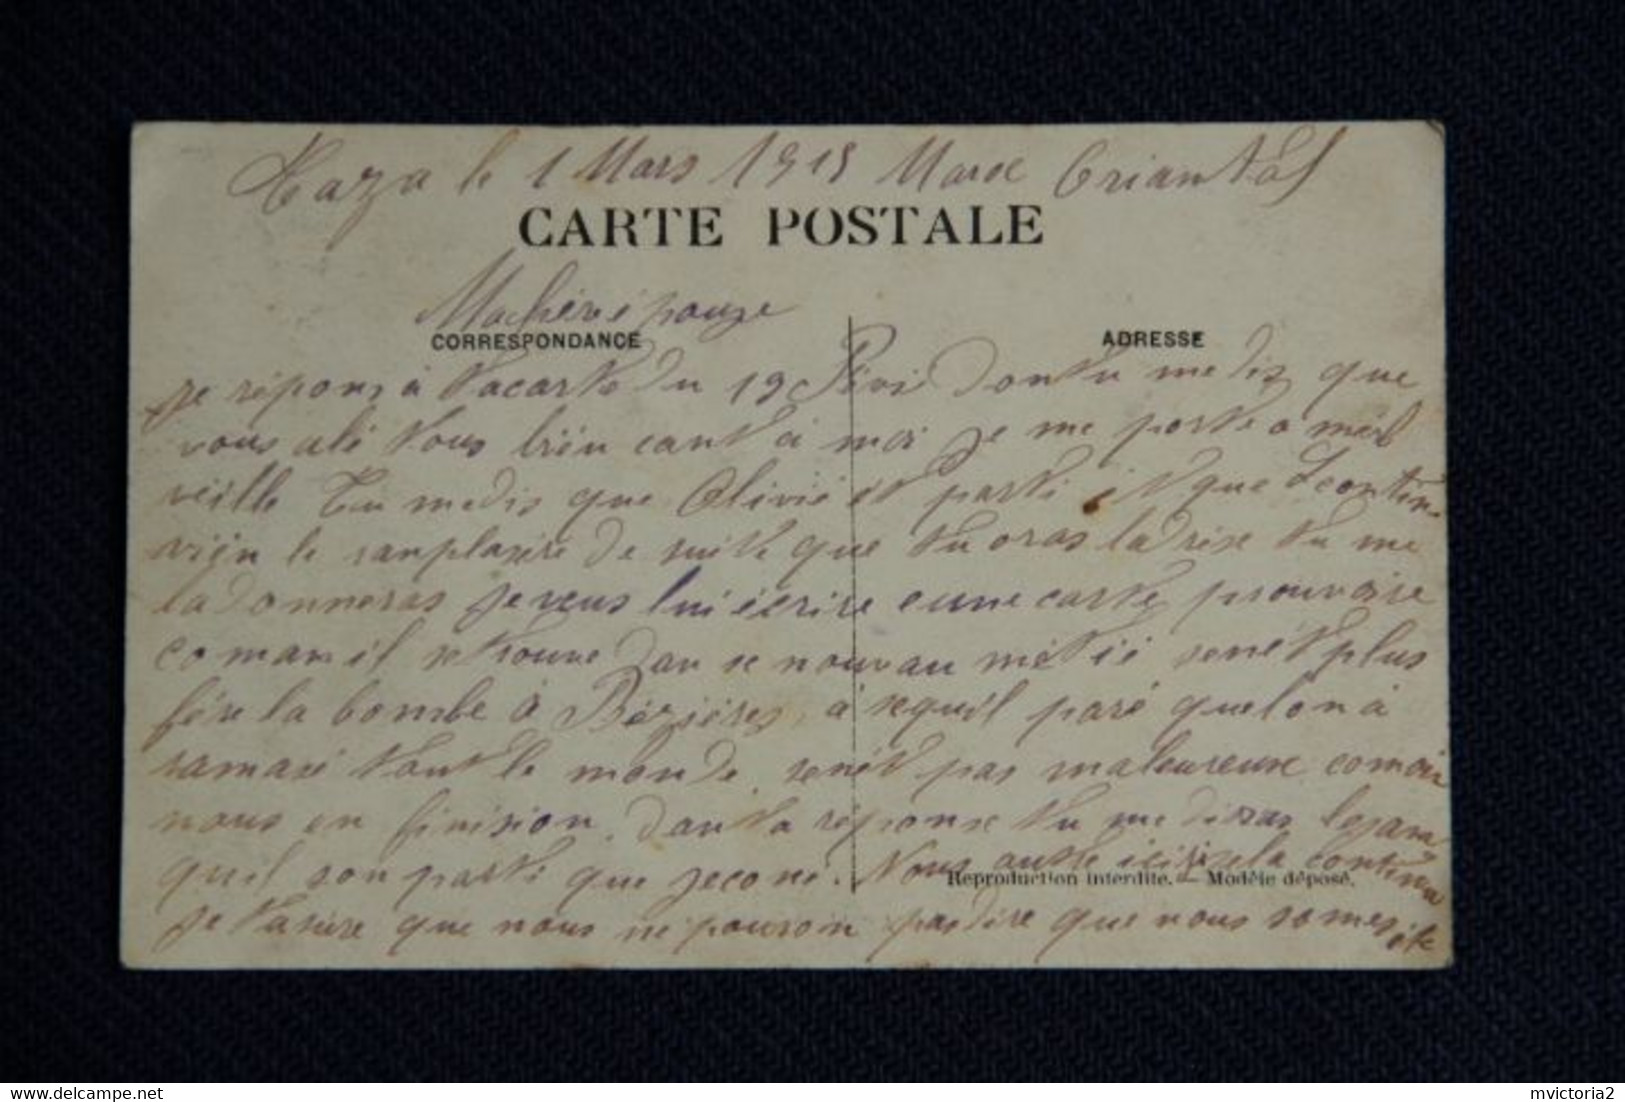 Taza le 1 Mars 1915 Maroc Oriantal
CARTE POSTALE
Machère épouze
CORRESPONDANCE
ADRESSE
Je répons à tacarte du 19 Dontu medis que
vous alé tous bien cant à moi Je me porte a mer
veille Tu medis que Olivié et parti et que Leontin
vien le ranplasere de suite que tu oras ladrise tu me
ladonneras Jeveus lui écrire eune carte pourvoire
coman il setrouve dan se nouvau métié senet plus
fére la bombe à Béziéres, à sequil paré quelon à
ramasé tout le monde senet pas maleureuse comoin
nous en finision. Dan ta réponse tu me diras lejan
quil son parti que Jeconé. Nous autre isi sela continu
Reproduction interdite. — Modèle déposé.
Je tasure que nous ne pouvon pasdire que nous somes
mvictoria2